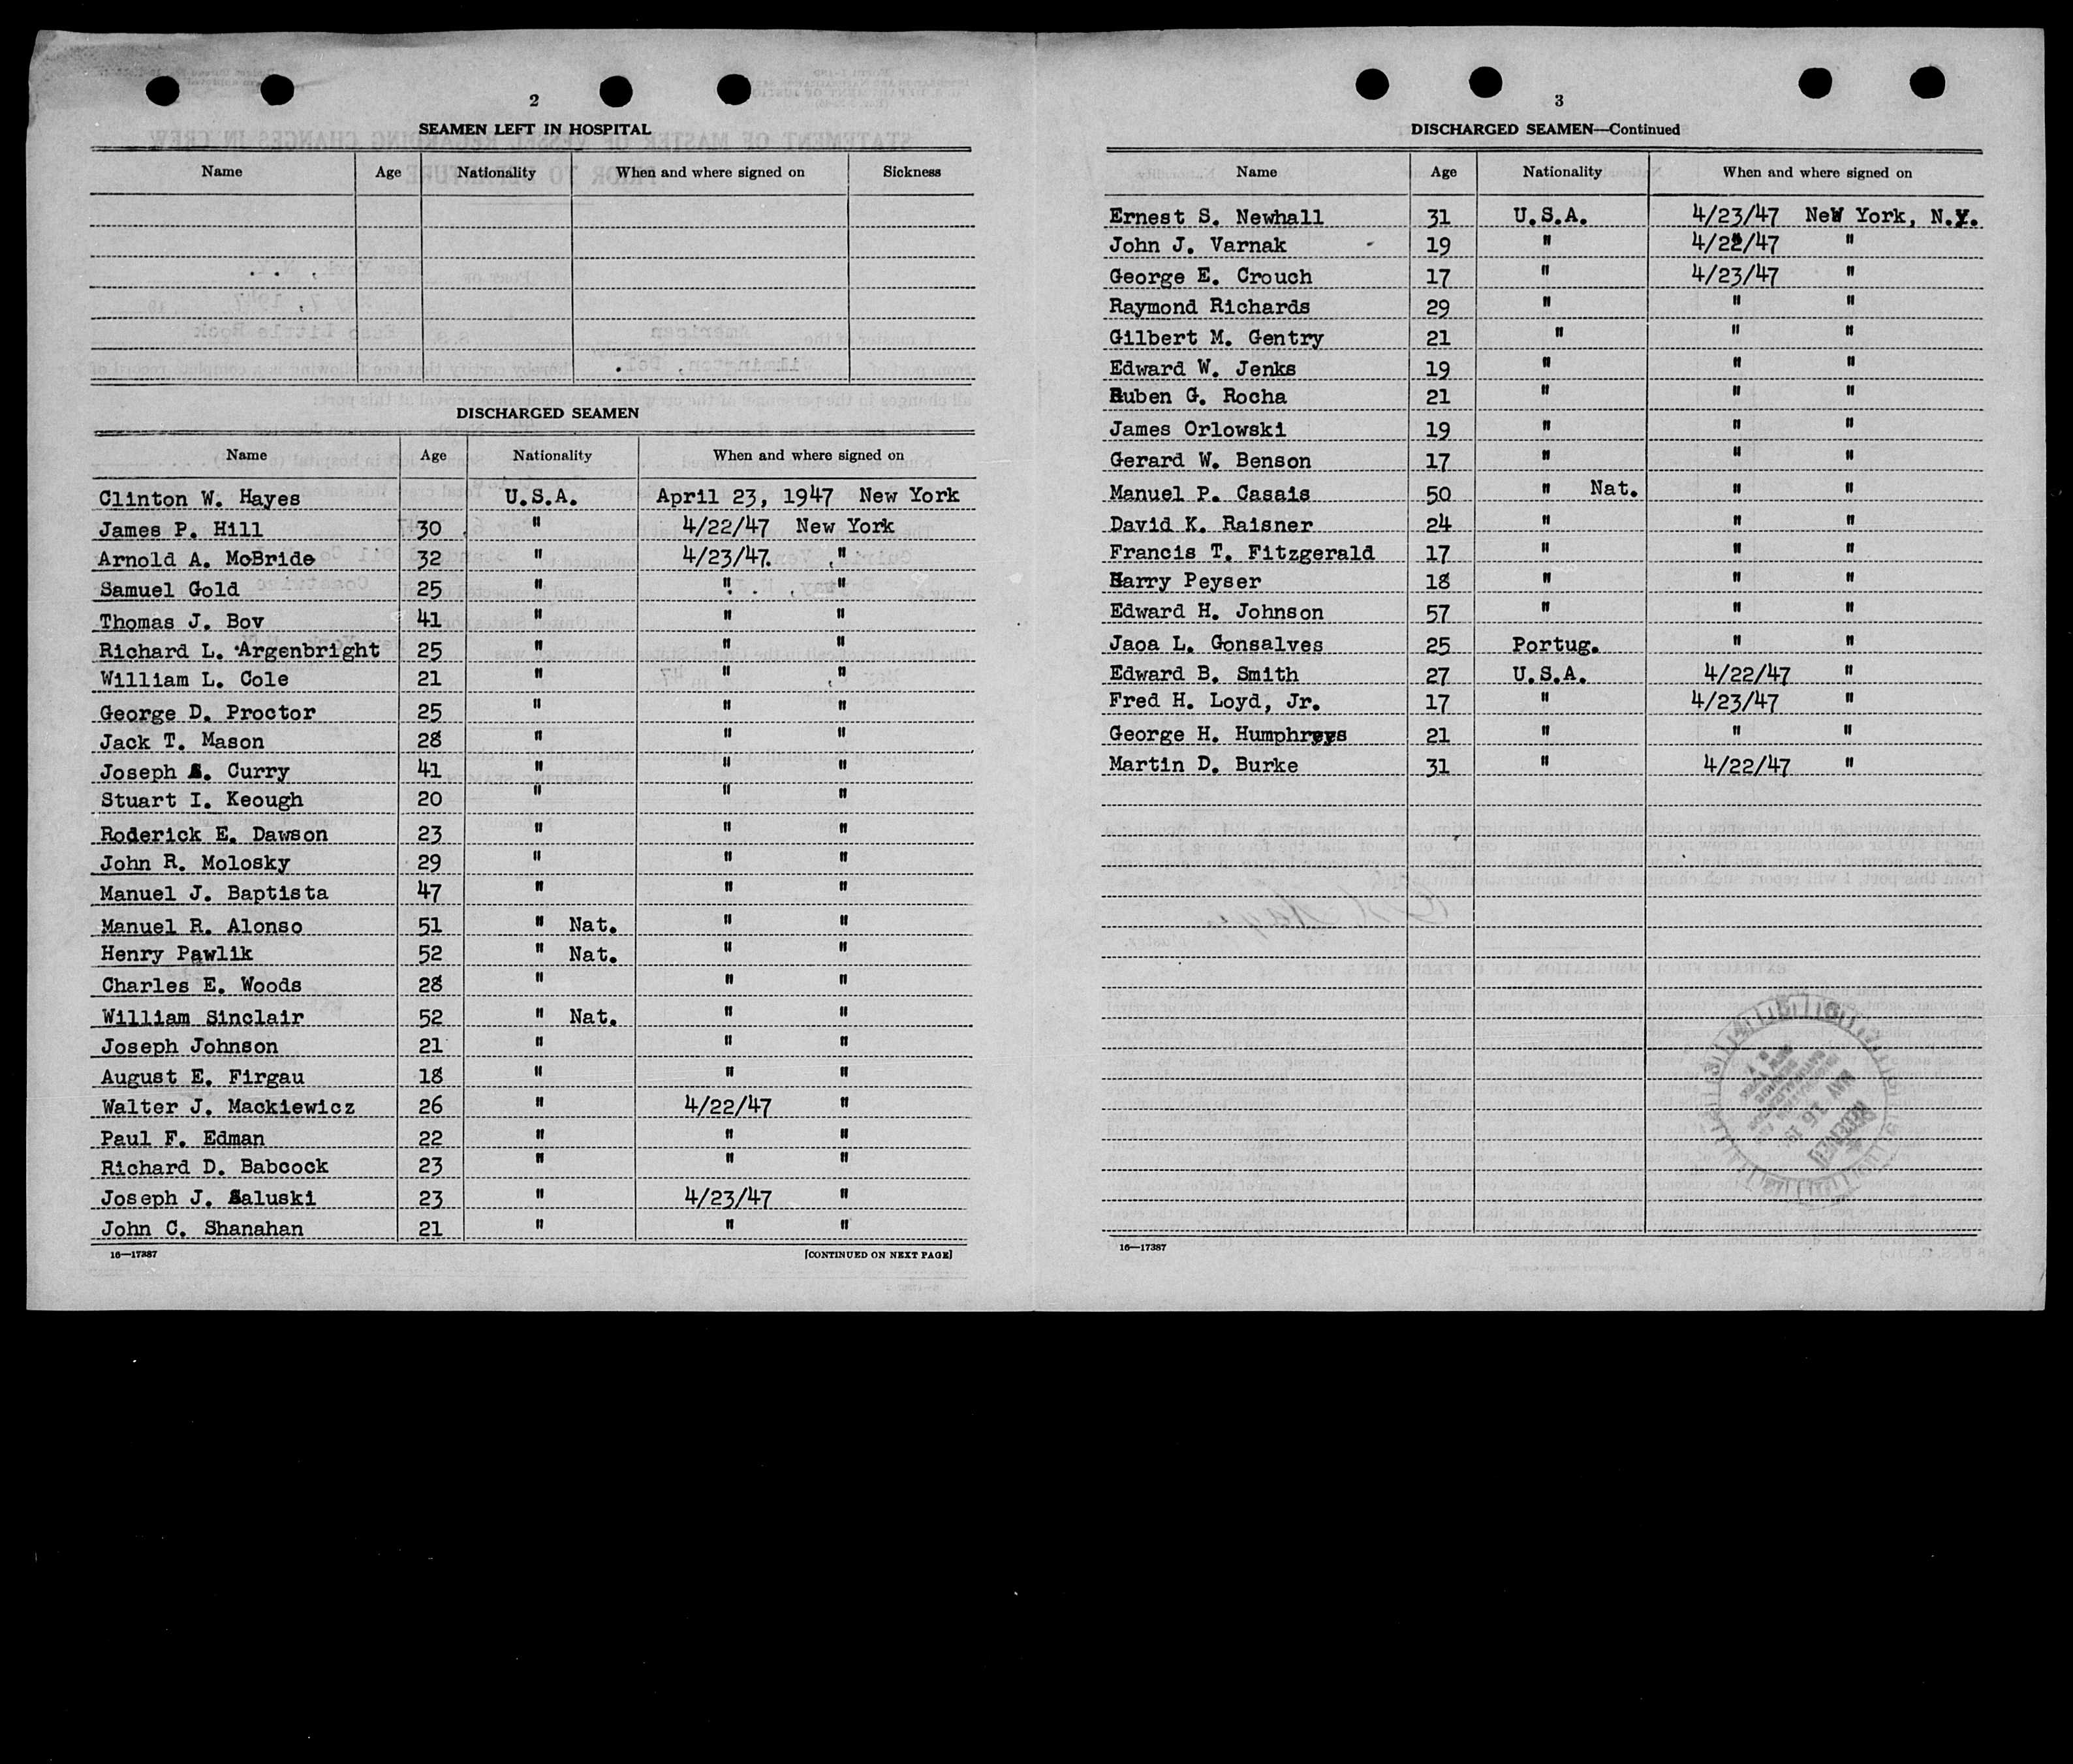 2
SEAMEN LEFT IN HOSPITAL
Name Age Nationality When and where signed on Sickness
DISCHARGED SEAMEN
Name Age Nationality When and where signed on
Clinton W. Hayes U.S.A. April 23, 1947 New York
James P. Hill 30 " 4/22/47 New York
Arnold A. McBride 32 " 4/23/47. "
Samuel Gold 25 " " "
Thomas J. Bov 41 " " "
Richard L. Argenbright 25 " " "
William L. Cole 21 " " "
George D. Proctor 25 " " "
Jack T. Mason 28 " " "
Joseph A. Curry 41 " " "
Stuart I. Keough 20 " " "
Roderick E. Dawson 23 " " "
John R. Molosky 29 " " "
Manuel J. Baptista 47 " " "
Manuel R. Alonso 51 " Nat. " "
Henry Pawlik 52 " Nat. " "
Charles E. Woods 28 " " "
William Sinclair 52 " Nat. " "
Joseph Johnson 21 " " "
August E. Firgau 18 " " "
Walter J. Mackiewicz 26 " 4/22/47 "
Paul F. Edman 22 " " "
Richard D. Babcock 23 " " "
Joseph J. Saluski 23 " 4/23/47 "
John C. Shanahan 21 " " "
16—17387 [CONTINUED ON NEXT PAGE]
3
DISCHARGED SEAMEN—Continued
Name Age Nationality When and where signed on
Ernest S. Newhall 31 U.S.A. 4/23/47 New York, N.Y.
John J. Varnak 19 " 4/22/47 "
George E. Crouch 17 " 4/23/47 "
Raymond Richards 29 " " "
Gilbert M. Gentry 21 " " "
Edward W. Jenks 19 " " "
Ruben G. Rocha 21 " " "
James Orlowski 19 " " "
Gerard W. Benson 17 " " "
Manuel P. Casais 50 " Nat. " "
David K. Raisner 24 " " "
Francis T. Fitzgerald 17 " " "
Harry Peyser 18 " " "
Edward H. Johnson 57 " " "
Jaoa L. Gonsalves 25 Portug. " "
Edward B. Smith 27 U.S.A. 4/22/47 "
Fred H. Loyd, Jr. 17 " 4/23/47 "
George H. Humphreys 21 " " "
Martin D. Burke 31 " 4/22/47 "
RECEIVED
MAY 16 19
16—17387